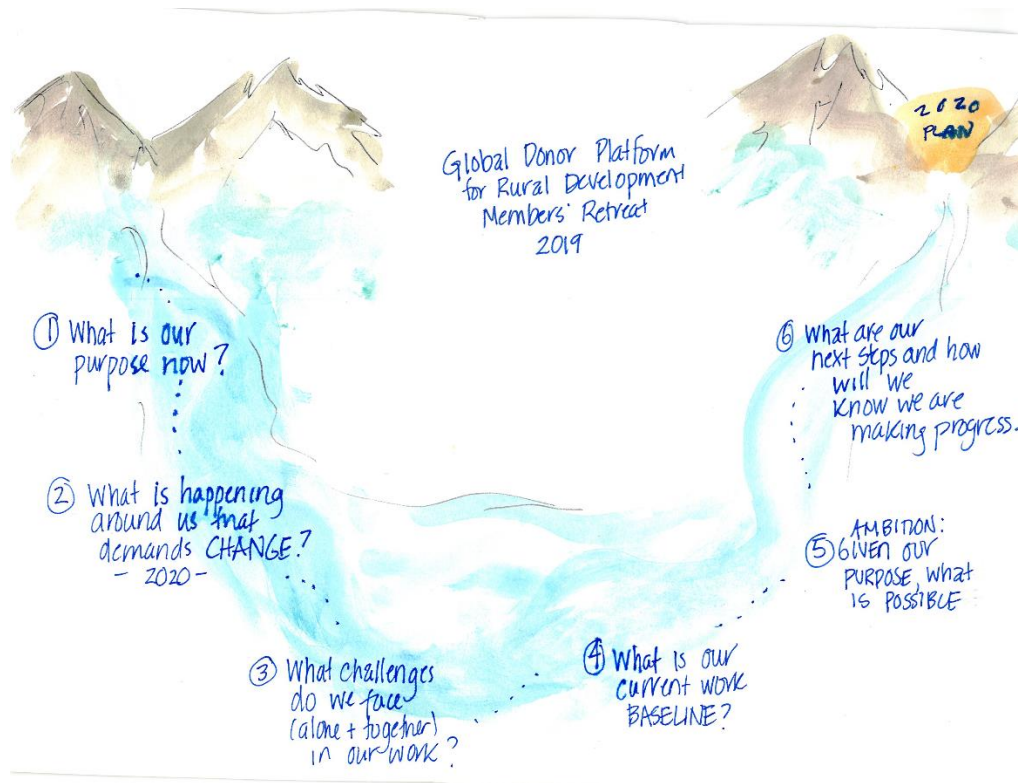 Global Donor Platform
for Rural Development
Members' Retreat
2019
2020
PLAN
① What is our
purpose now?
② What is happening
around us that
demands CHANGE?
- 2020 -
③ What challenges
do we face
(alone + together)
in our work?
④ What is our
current work
BASELINE?
AMBITION:
⑤ GIVEN OUR
PURPOSE, WHAT
IS POSSIBLE
⑥ What are our
next steps and how
will we
know we are
making progress.